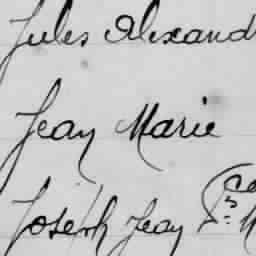 Jules Alexand
Jean Marie
Joseph Jean